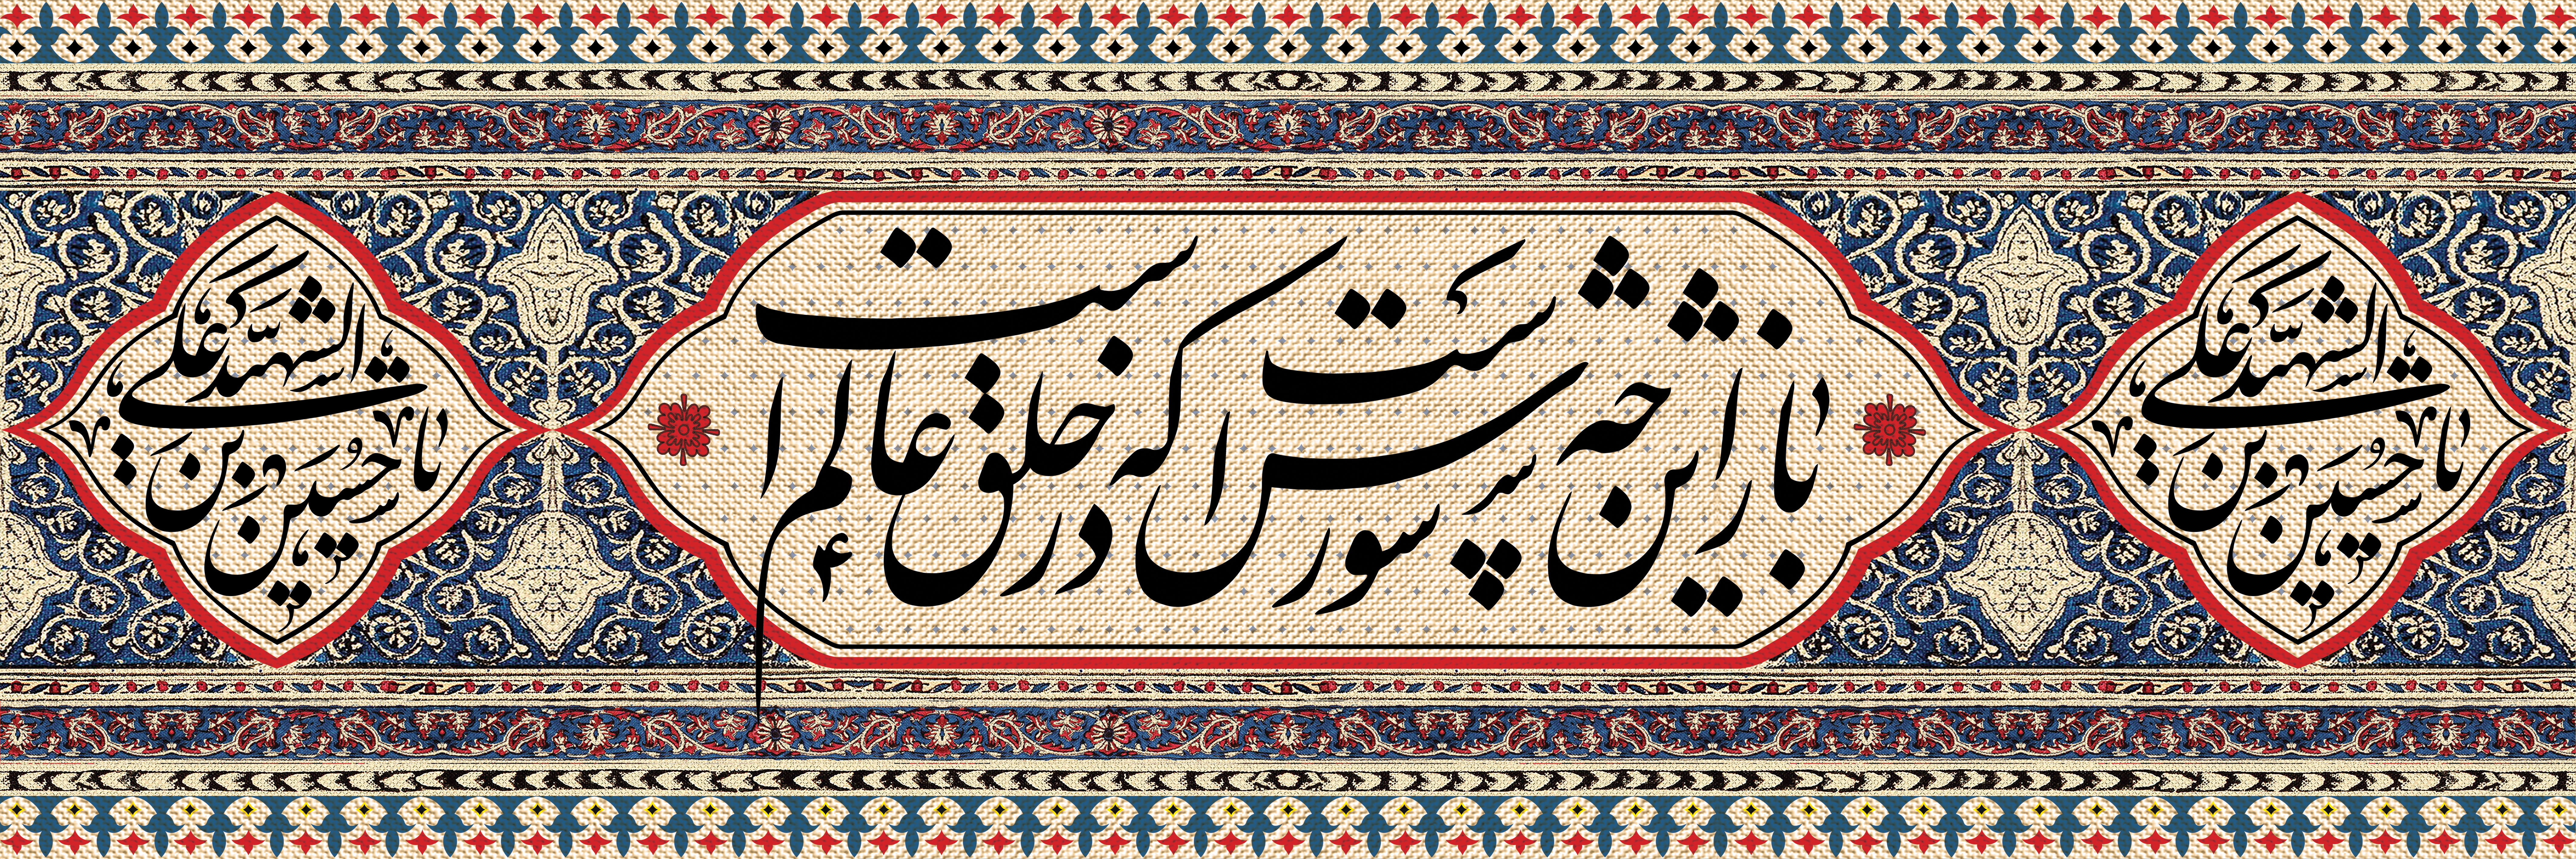 یا حسین بن علی الشهید
باز این چه شورش است که در خلق عالم است
یا حسین بن علی الشهید